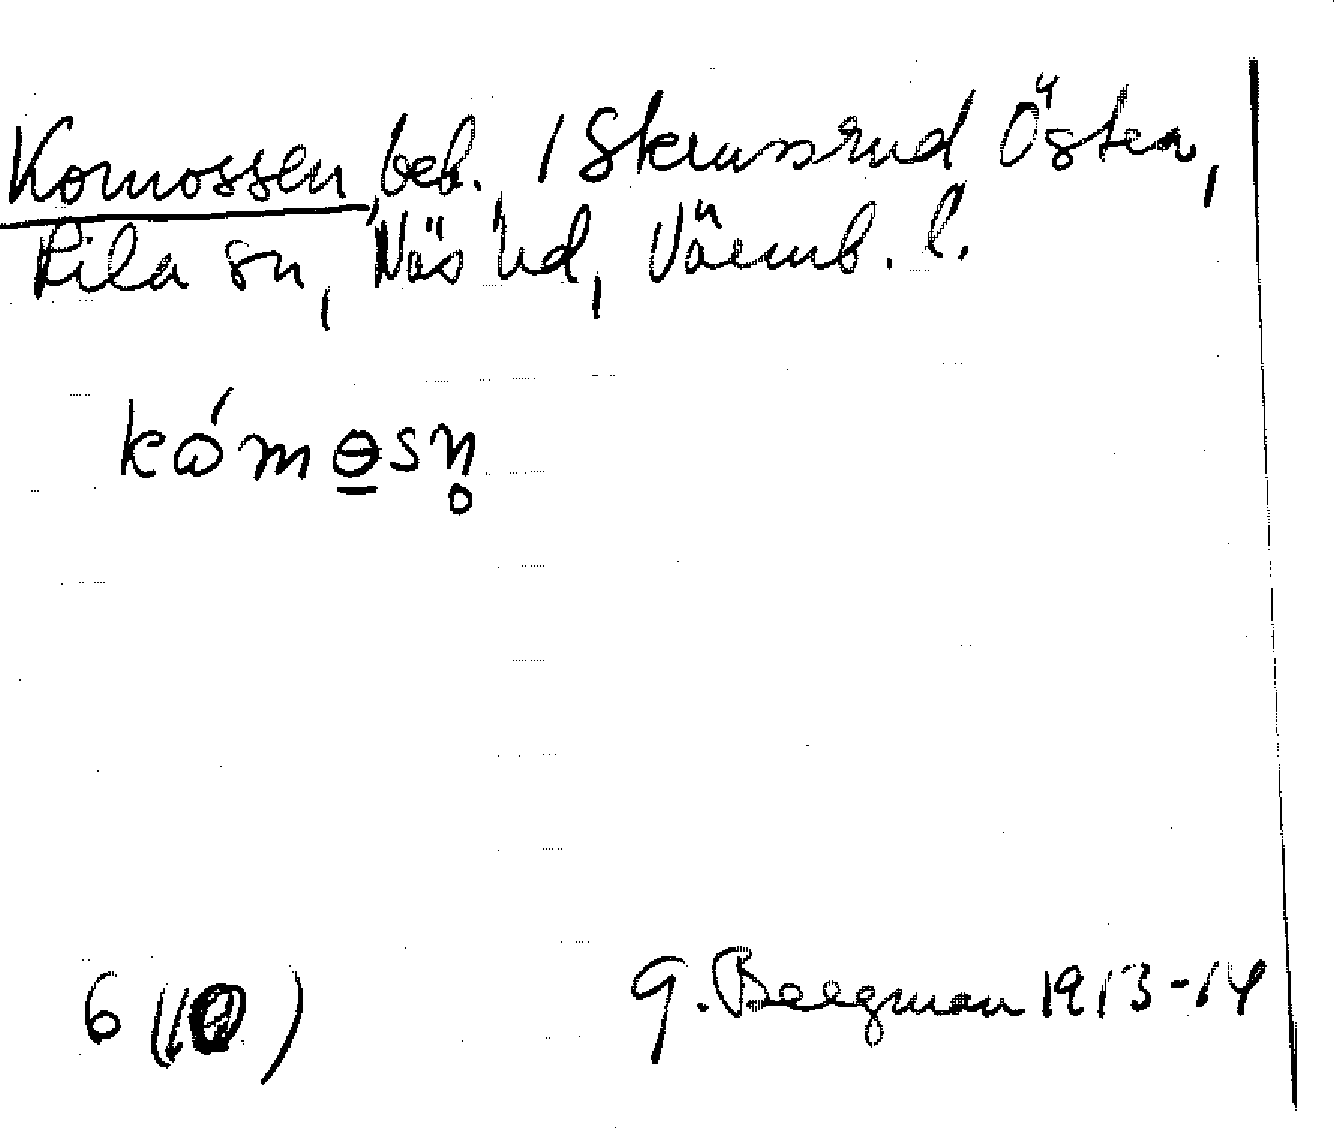 Komossen, beb. / Skrussrud Östra,
Sila sn, Näs hd, Värmb. l.
kómɵ̱sn̥
6 (10)
G. Bergman 1913-14